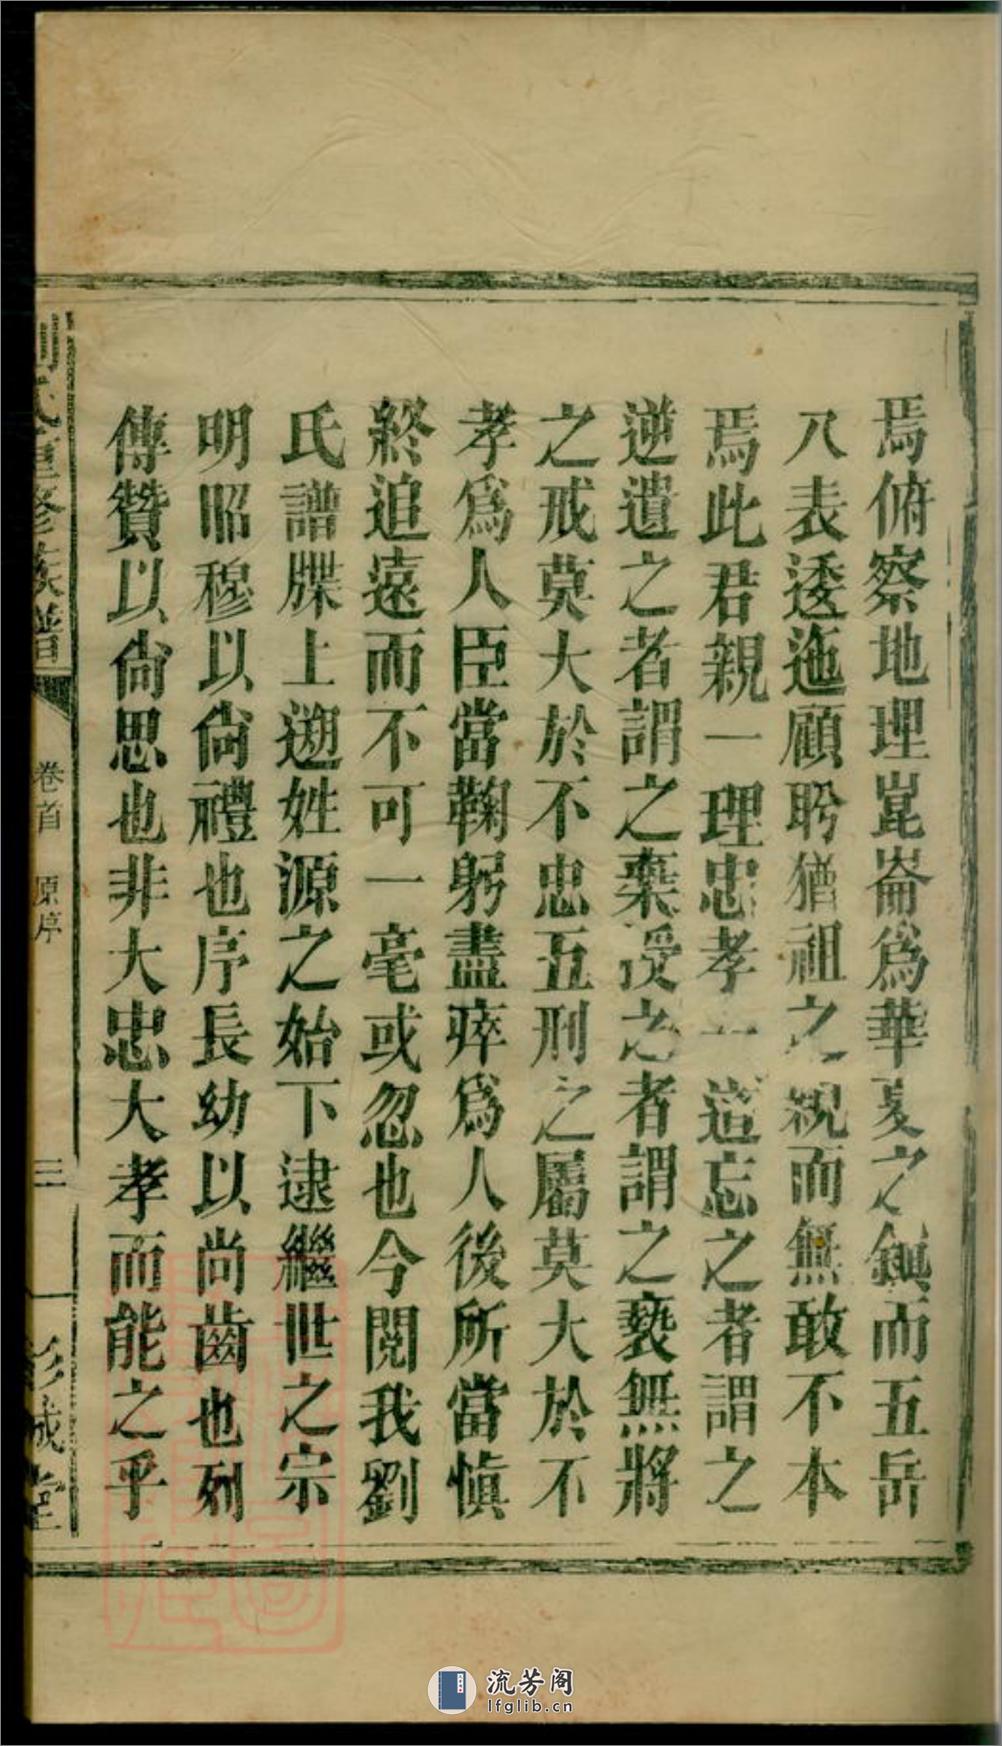 焉俯察地理崑崙爲華夏之鎭而五岳
八表逶迤顧盻猶祖之親而無敢不本
焉此君親一理忠孝一道忘之者謂之
逆遺之者謂之棄受之者謂之褻無將
之戒莫大於不忠五刑之屬莫大於不
孝爲人臣當鞠躬盡瘁爲人後所當愼
終追遠而不可一毫或忽也今閱我劉
氏譜牒上遡姓源之始下逮繼世之宗
明昭穆以尙禮也序長幼以尚齒也列
傳贊以尙思也非大忠大孝而能之乎
氏重修族譜
卷首 原序
三
彭城堂
流芳阁
lfglib.cn